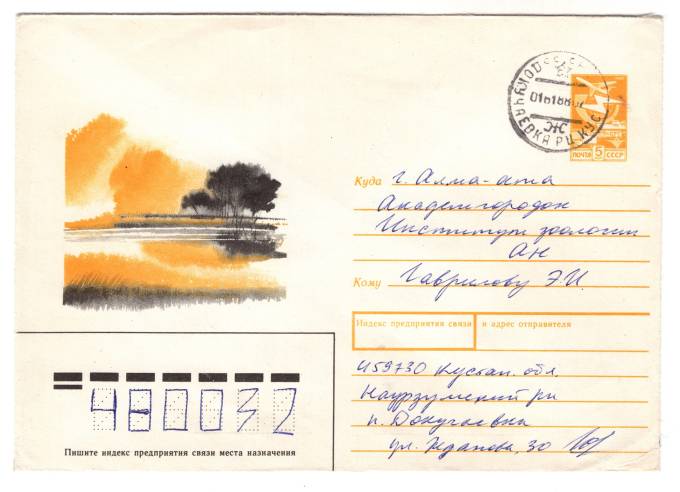 ПОЧТА 5 СССР
Куда г. Алма-ата
Академгородок
Институт зоологии
АН
Кому Гаврилову Э.И.
Индекс предприятия связи и адрес отправителя
459730 Кустан. обл.
Наурзумский рн
п. Докучаевка
ул. Жданова, 30
480032
Пишите индекс предприятия связи места назначения